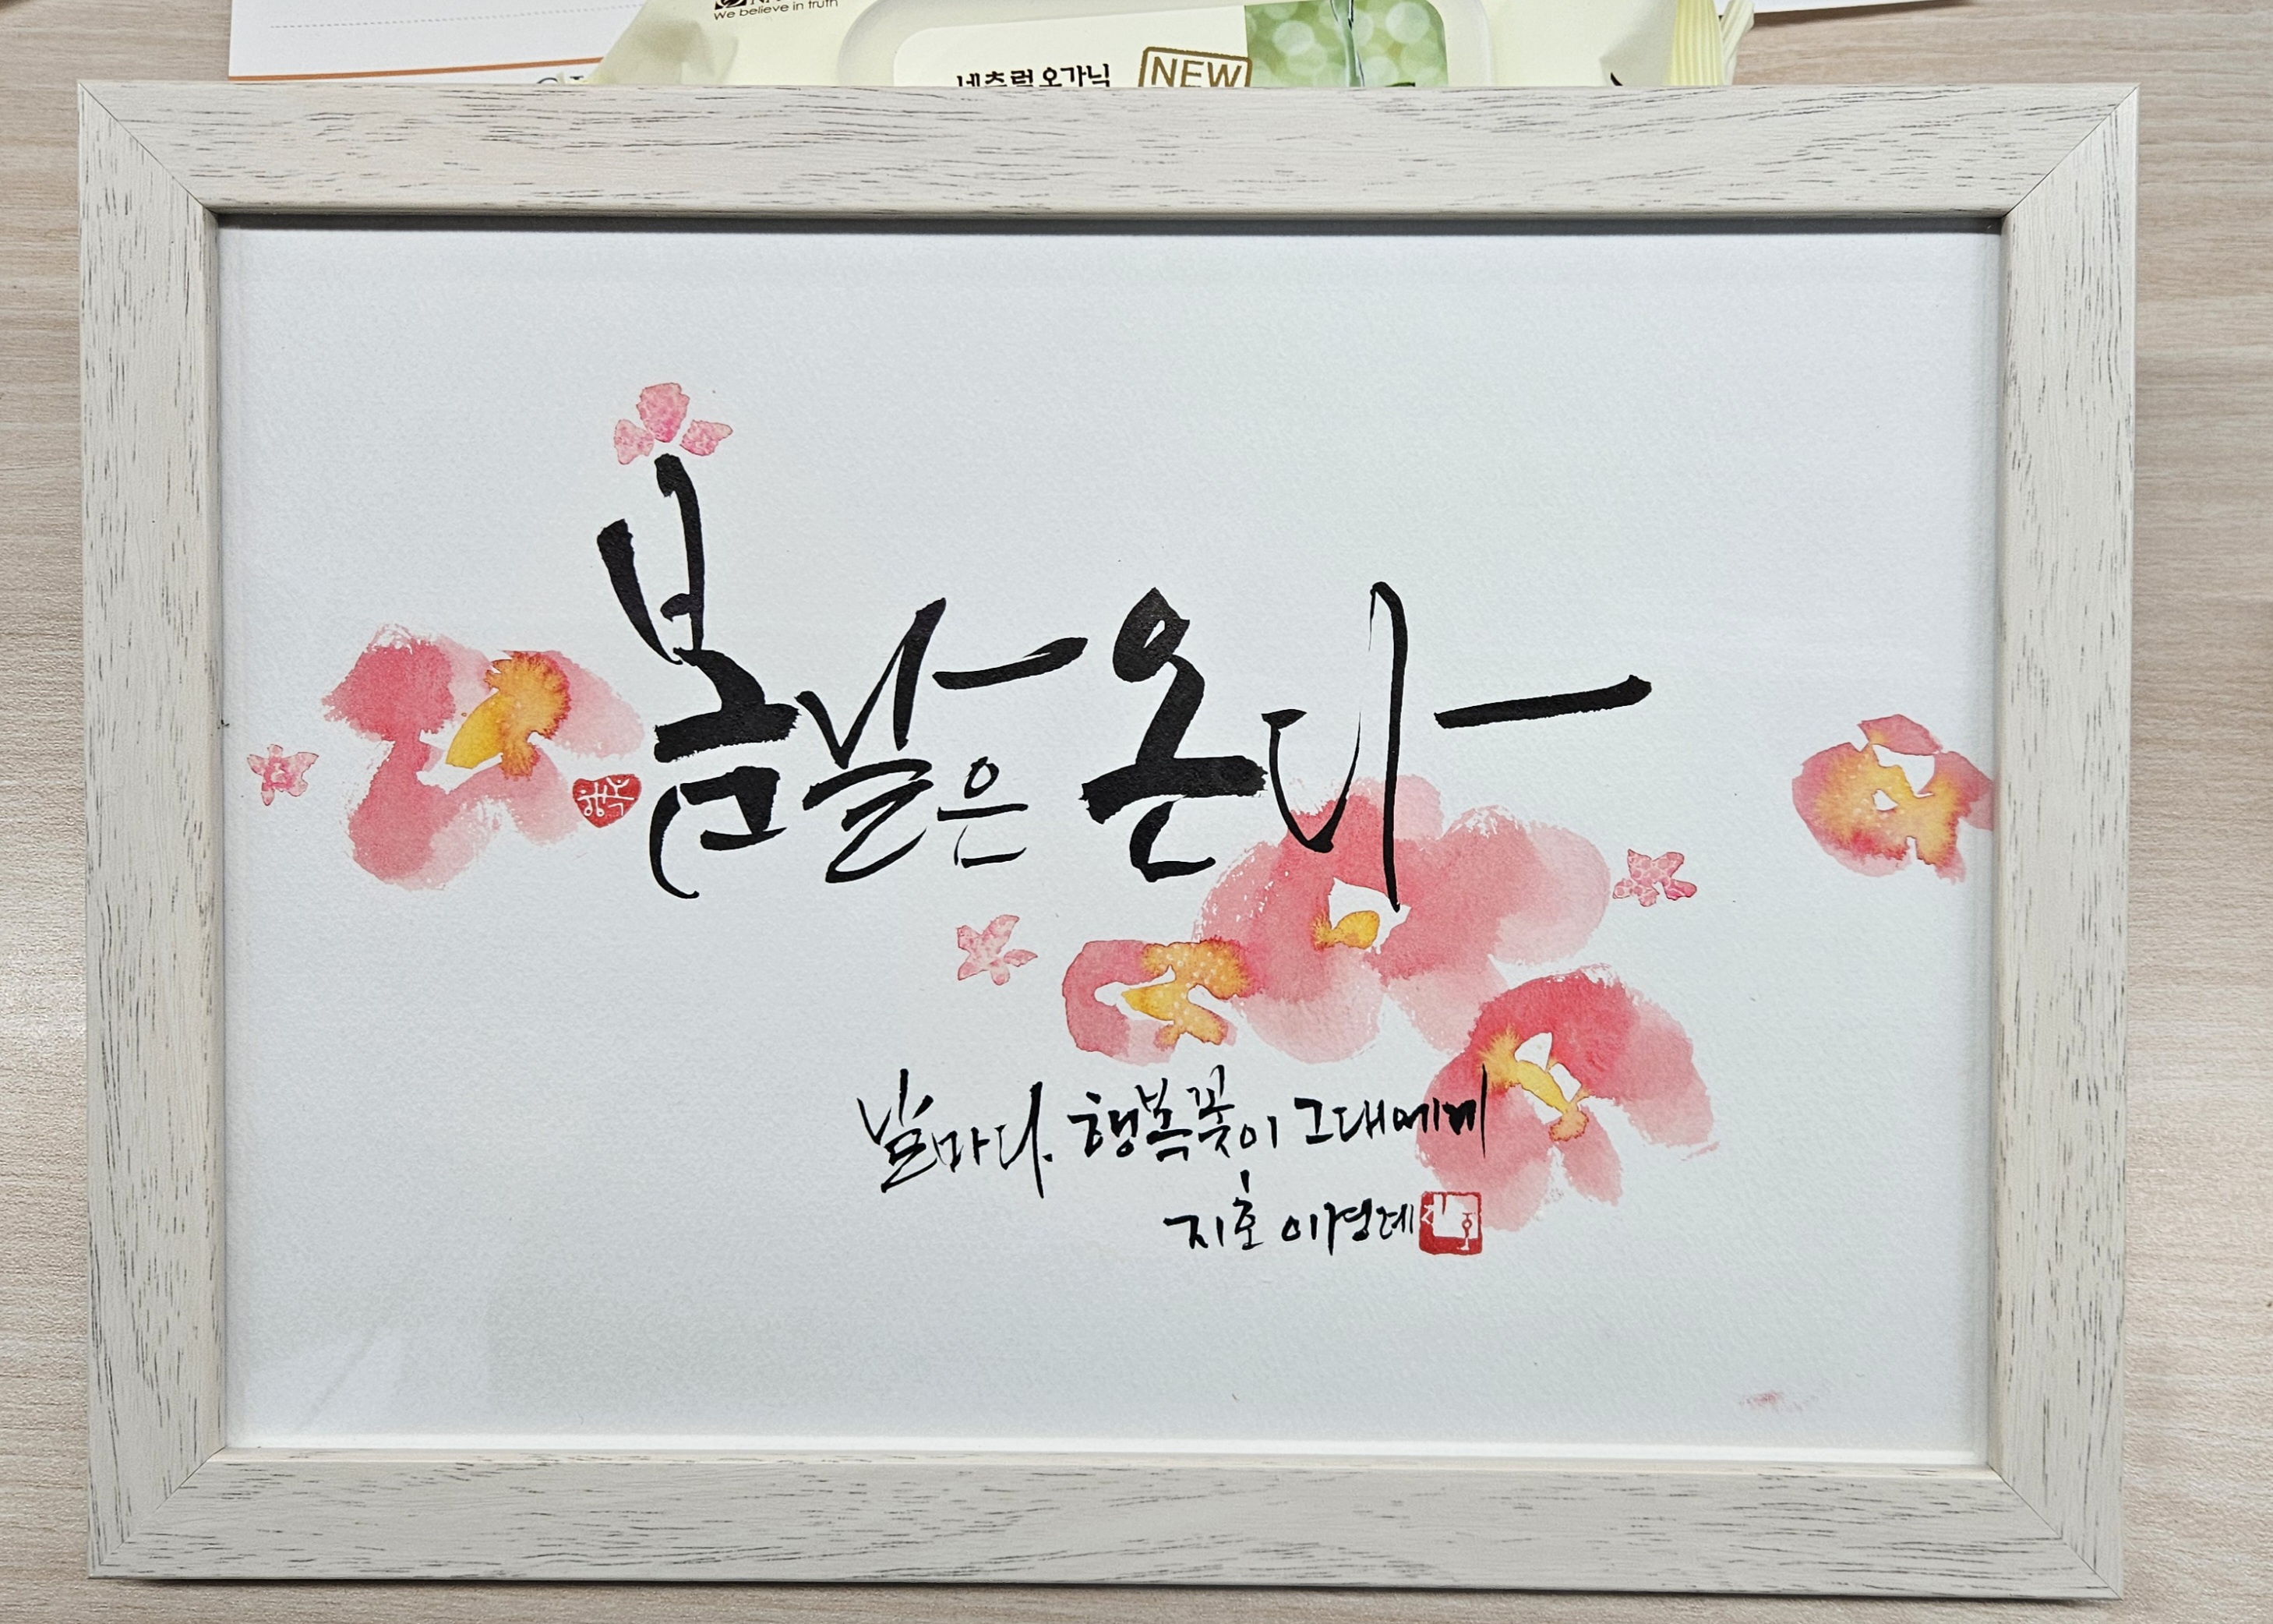 We believe in truth
네츄럴오가닉
NEW
봄날은 온다
날마다. 행복꽃이 그대에게
지호 이경례